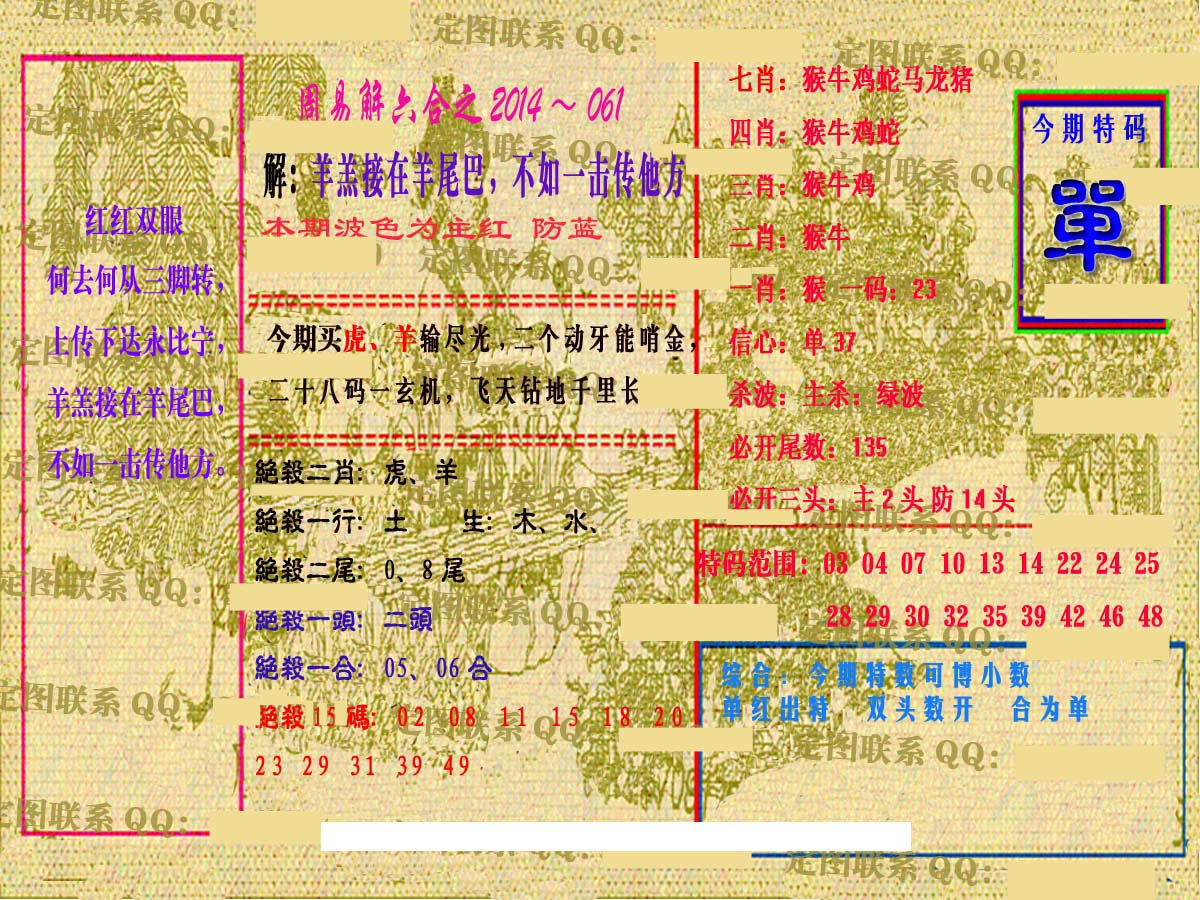 周易解六合之 2014～061
解：羊羔接在羊尾巴，不如一击传他方
本期波色为主红 防蓝
红红双眼
何去何从三脚转，
上传下达永比宁，
羊羔接在羊尾巴，
不如一击传他方。
今期买虎、羊输尽光，二个动牙能哨金，
二十八码一玄机，飞天钻地千里长
絕殺二肖：虎、羊
絕殺一行：土 生：木、水、
絕殺二尾：0、8尾
絕殺一頭：二頭
絕殺一合：05、06合
絕殺15碼：02 08 11 15 18 20
23 29 31 39 49
七肖：猴牛鸡蛇马龙猪
四肖：猴牛鸡蛇
三肖：猴牛鸡
二肖：猴牛
一肖：猴 一码：23
信心：单 37
杀波：主杀：绿波
必开尾数：135
必开三头：主 2 头 防 14 头
特码范围：03 04 07 10 13 14 22 24 25
28 29 30 32 35 39 42 46 48
今期特码
單
综合：今期特数可博小数
单红出特 双头数开 合为单
定图联系 QQ：
定图联系 QQ：
定图联系 QQ：
定图联系 QQ：
定图联系 QQ：
定图联系 QQ：
定图联系 QQ：
定图联系 QQ：
定图联系 QQ：
定图联系 QQ：
定图联系 QQ：
定图联系 QQ：